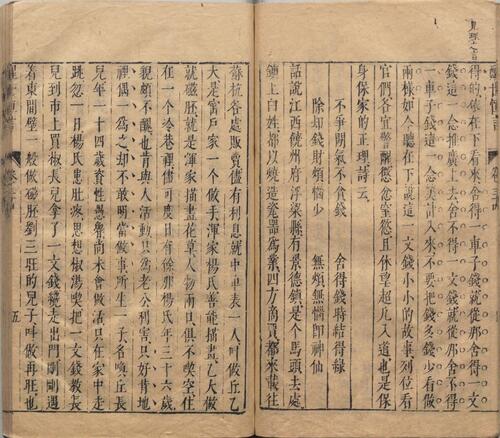 得的依在下看來舍得一車子錢就從那舍得一文
錢這一念推廣上去舍不得一文錢就從那舍不得
一車子錢這一念美計入來不要把錢多錢少看做
兩樣如今聽在下說這一文錢小小的故事列位看
官們各宜警醒懲忿窒慾且休望超凡入道也是保
身保家的正理詩云
不爭閒氣不貪錢 舍得錢時結得緣
除却錢財煩惱少 無煩無惱即神仙
話說江西饒州府浮梁縣有景德鎮是个馬頭去處
鎮上百姓都以燒造瓷器為業四方商賈都來載往
蘇杭各處販賣儘有利息就中單表一人叫做丘乙
大是窰戶家一个做手渾家楊氏善能描畫乙大做
就磁胚就是渾家描畫花草人物兩口俱不喫空住
在一个冷巷裡儘可度日有餘那楊氏年三十六歲
貌頗不醜也肯與人活動只為老公利害只好背地
裡偶一為之却不敢明當做事所生一子名喚丘長
兒年一十四歲資性愚魯尚未會做活只在家中走
跳忽一日楊氏患肚疼思想椒湯喫把一文錢教長
兒到市上買椒長兒拿了一文錢纔走出門剛剛遇
着東間壁一般做磁胚劉三旺的兒子叫做再旺也
五